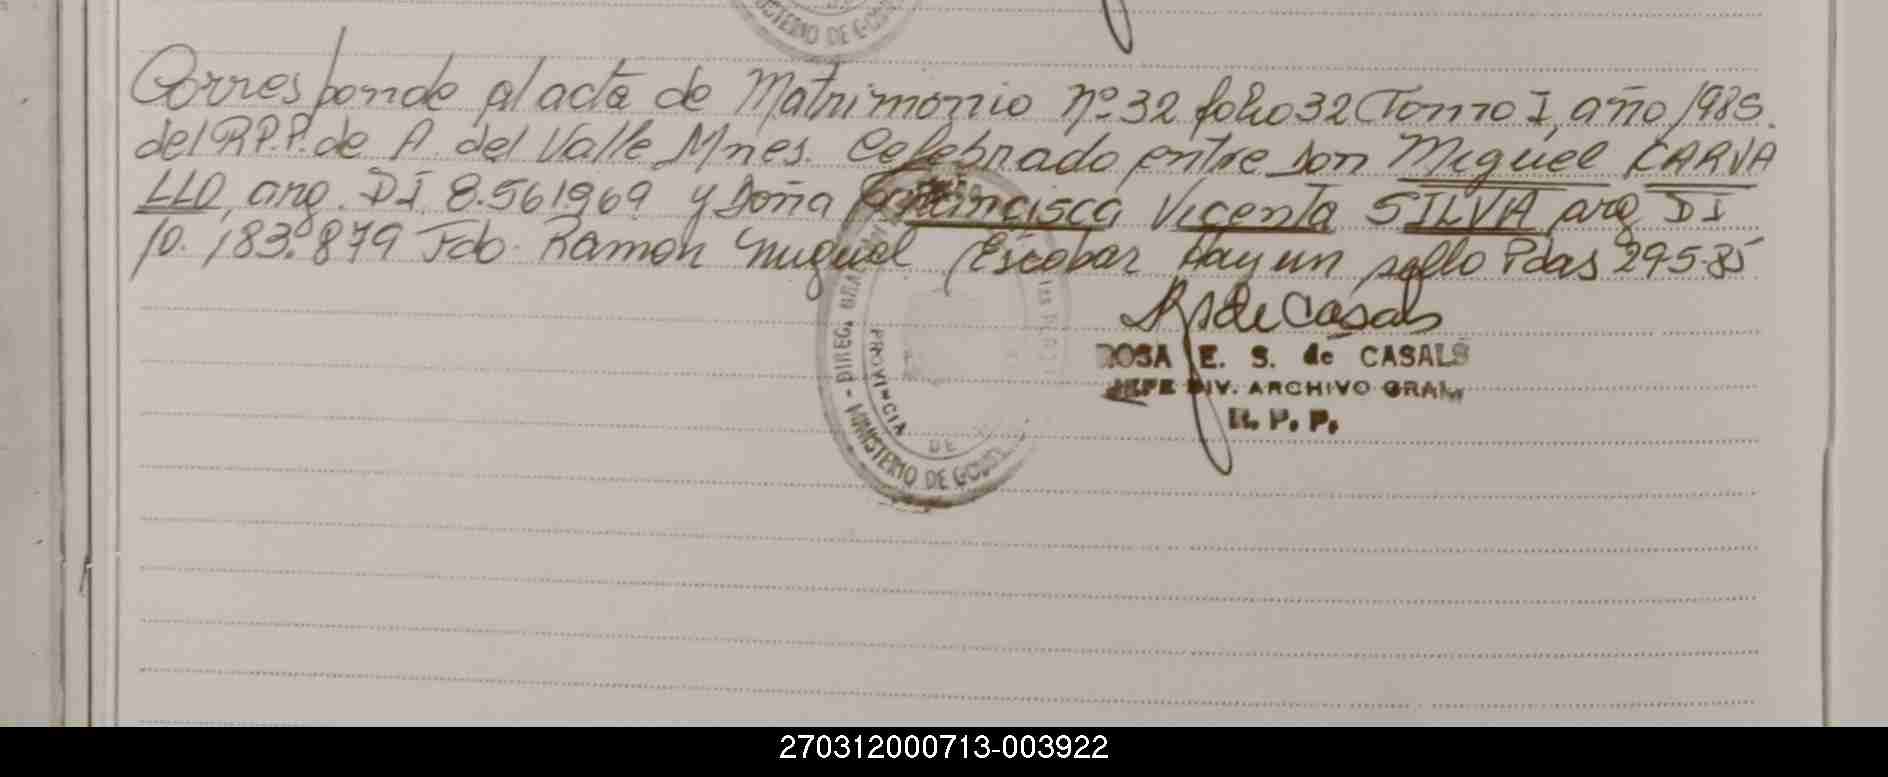 MINISTERIO DE GOB
Corresponde al acta de Matrimonio Nº 32 folio 32 Tomo I, año 1985.
del R.P.P. de A. del Valle Mnes. Celebrado entre Don Miguel CARVA
LLO, arg. DI 8.561969 y Doña Francisca Vicenta SILVA arg DI
10.183.879 Fdo. Ramon Miguel Escobar Hay un sello Pdas 29-5-85
R S de Casals
ROSA E. S. de CASALS
JEFE DIV. ARCHIVO GRAL.
R. P. P.
DIREG. GRAL
PROVINCIA DE
MINISTERIO DE GOB
270312000713-003922